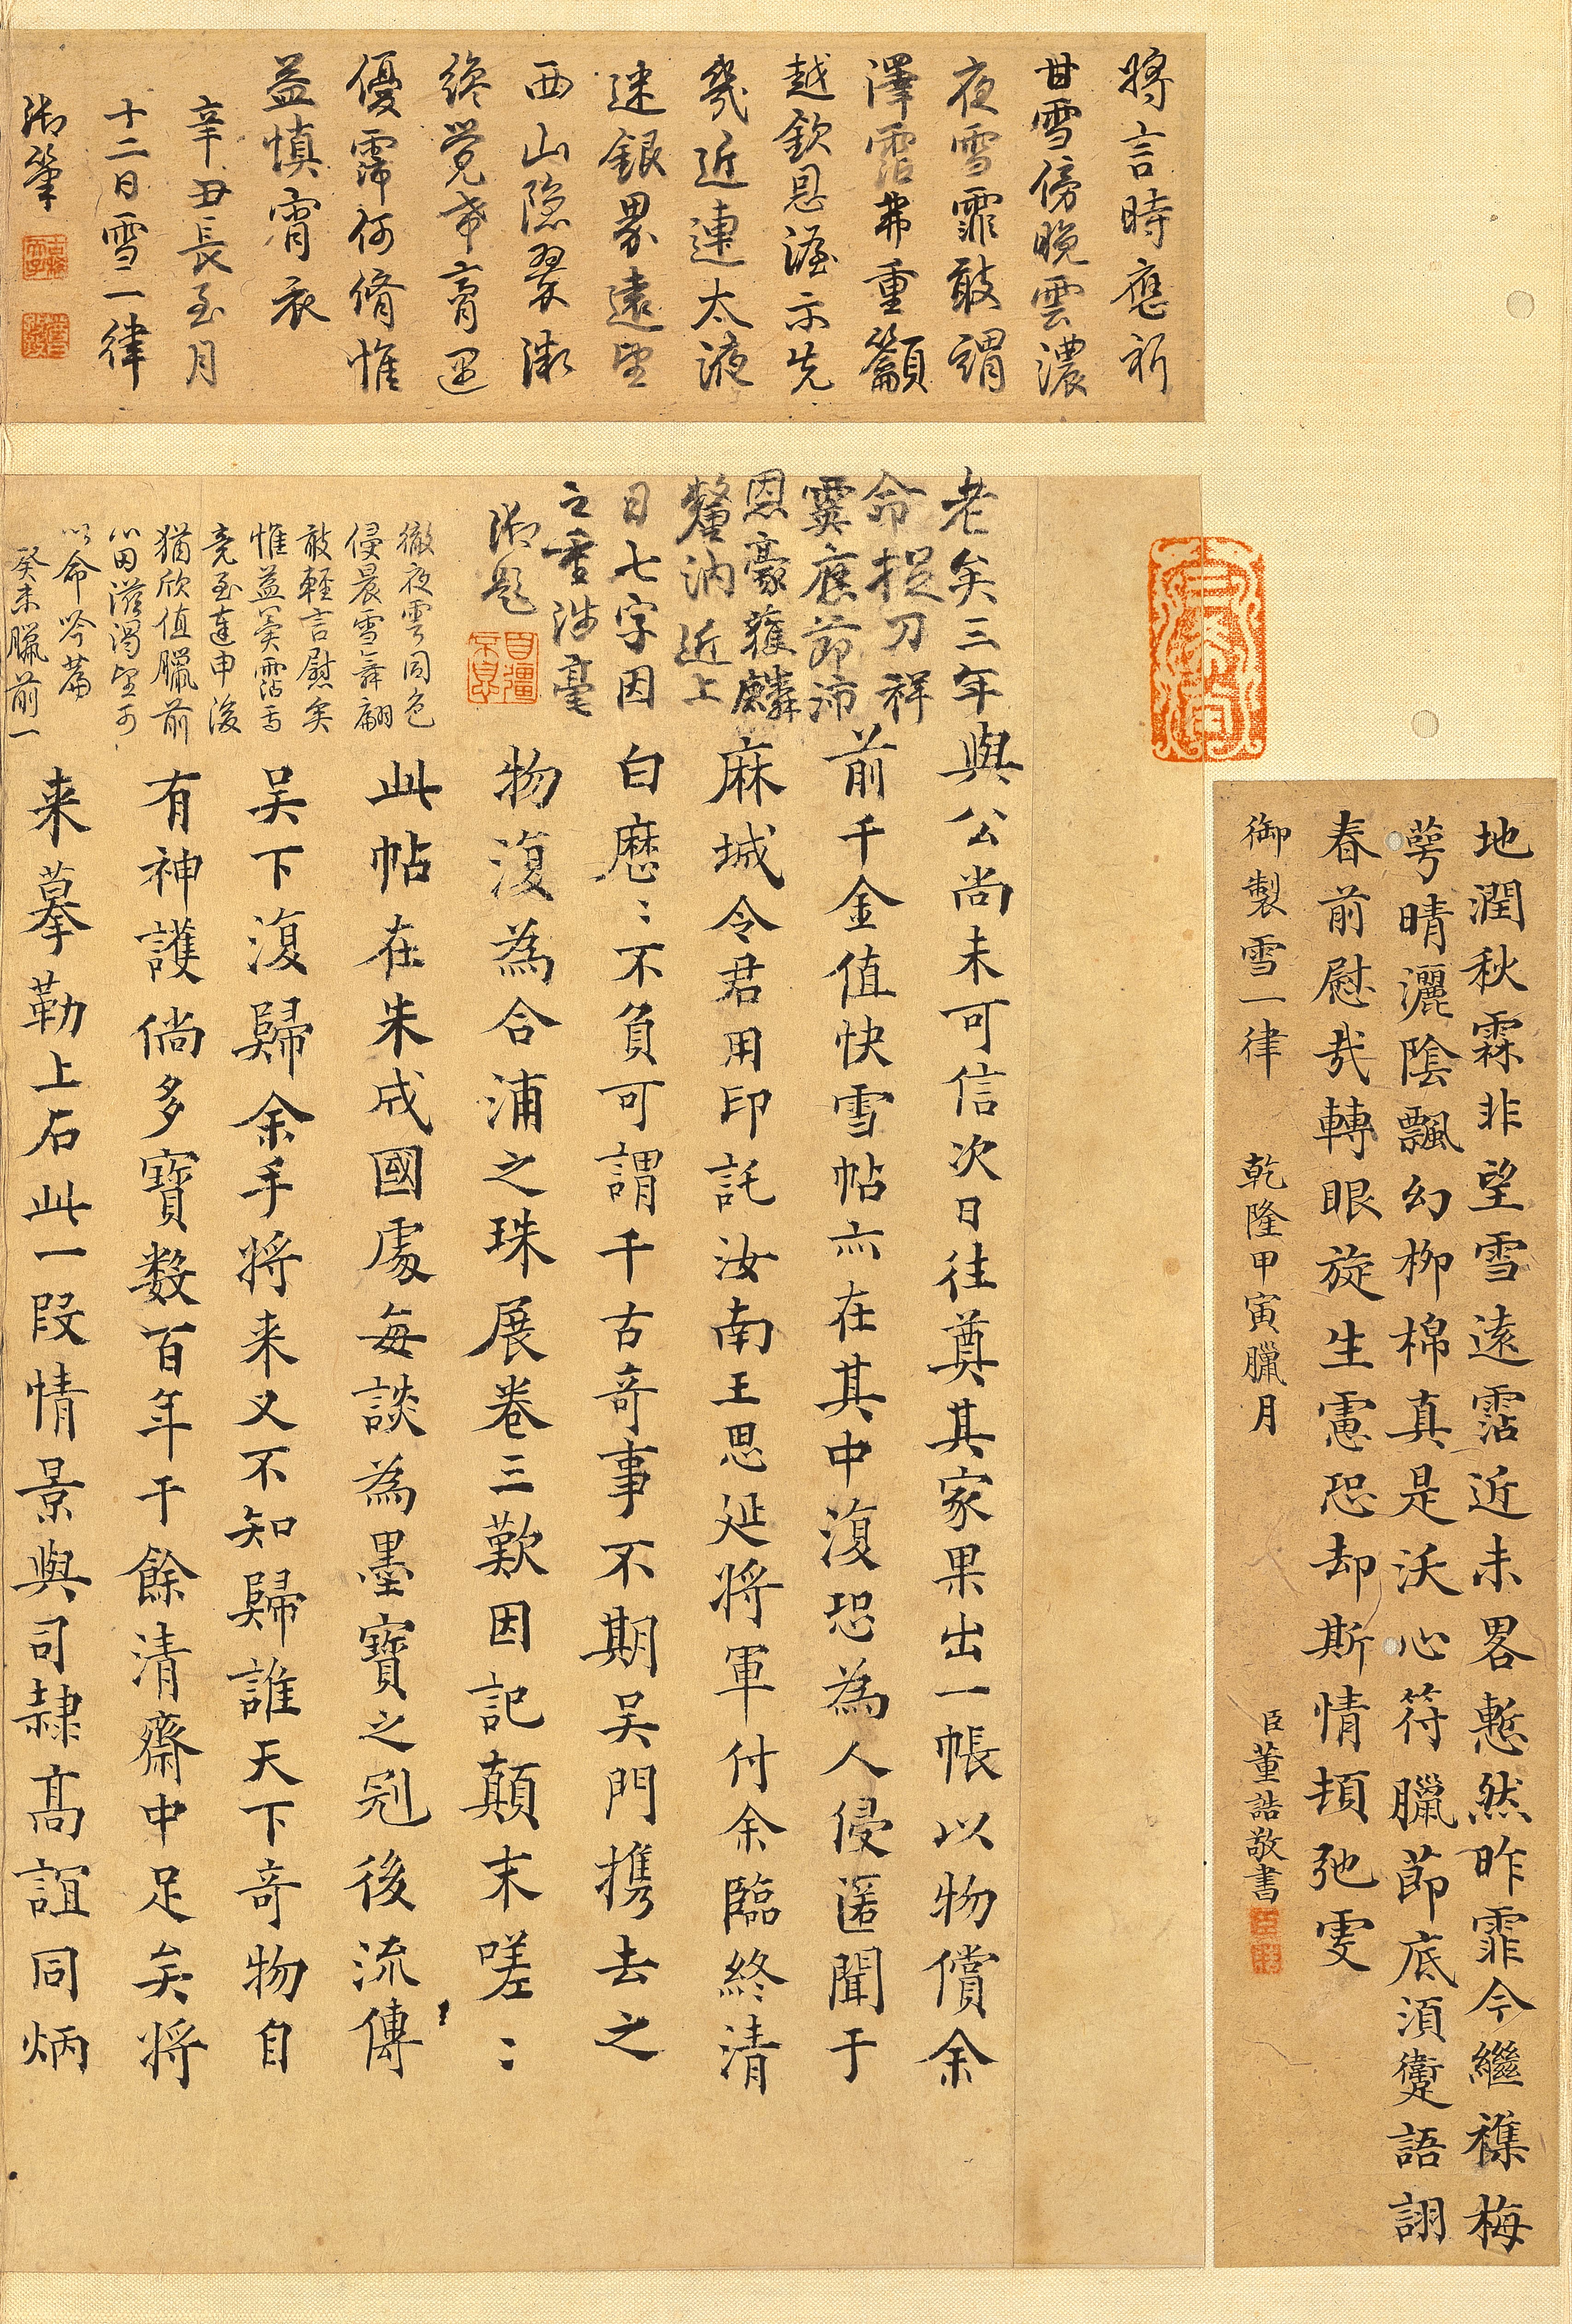 地潤秋霖非望雪遠霑近未畧慙然昨霏今繼襍梅
萼晴灑陰飄幻柳棉真是沃心符臘節底須躗語詡
春前慰哉轉眼旋生慮恐却斯情頓弛雯
御製雪一律 乾隆甲寅臘月 臣董誥敬書
將言時應祈
甘雪傍晚雲濃
夜雪霏敢謂
澤霑弗重籲
越欽恩渥示先
幾近連太液
迷銀界遠望
西山隱翠微
終覺希膏遲
優霈何脩惟
益慎宵衣
辛丑長至月
十二日雪一律
御筆
老矣三年
命捉刀祥
霙應節沛
恩豪獲麟
釐沩近上
日七字因
之重涉毫
御題
自彊不息
徹夜雲同色
侵晨雪舞翩
敢輕言慰矣
惟益冀霑焉
竟至連申後
猶欣值臘前
心田滋渴望可
以命吟篇
癸未臘前一
與公尚未可信次日往奠其家果出一帳以物償余
前千金值快雪帖亦在其中復恐為人侵匿聞于
麻城令君用印託汝南王思延將軍付余臨終清
白歷〻不負可謂千古奇事不期吳門携去之
物復為合浦之珠展卷三歎因記顛末嗟〻
此帖在朱成國處每談為墨寶之冠後流傳
吳下復歸余手將来又不知歸誰天下奇物自
有神護倘多寶數百年于餘清齋中足矣將
来摹勒上石此一段情景與司隷高誼同炳